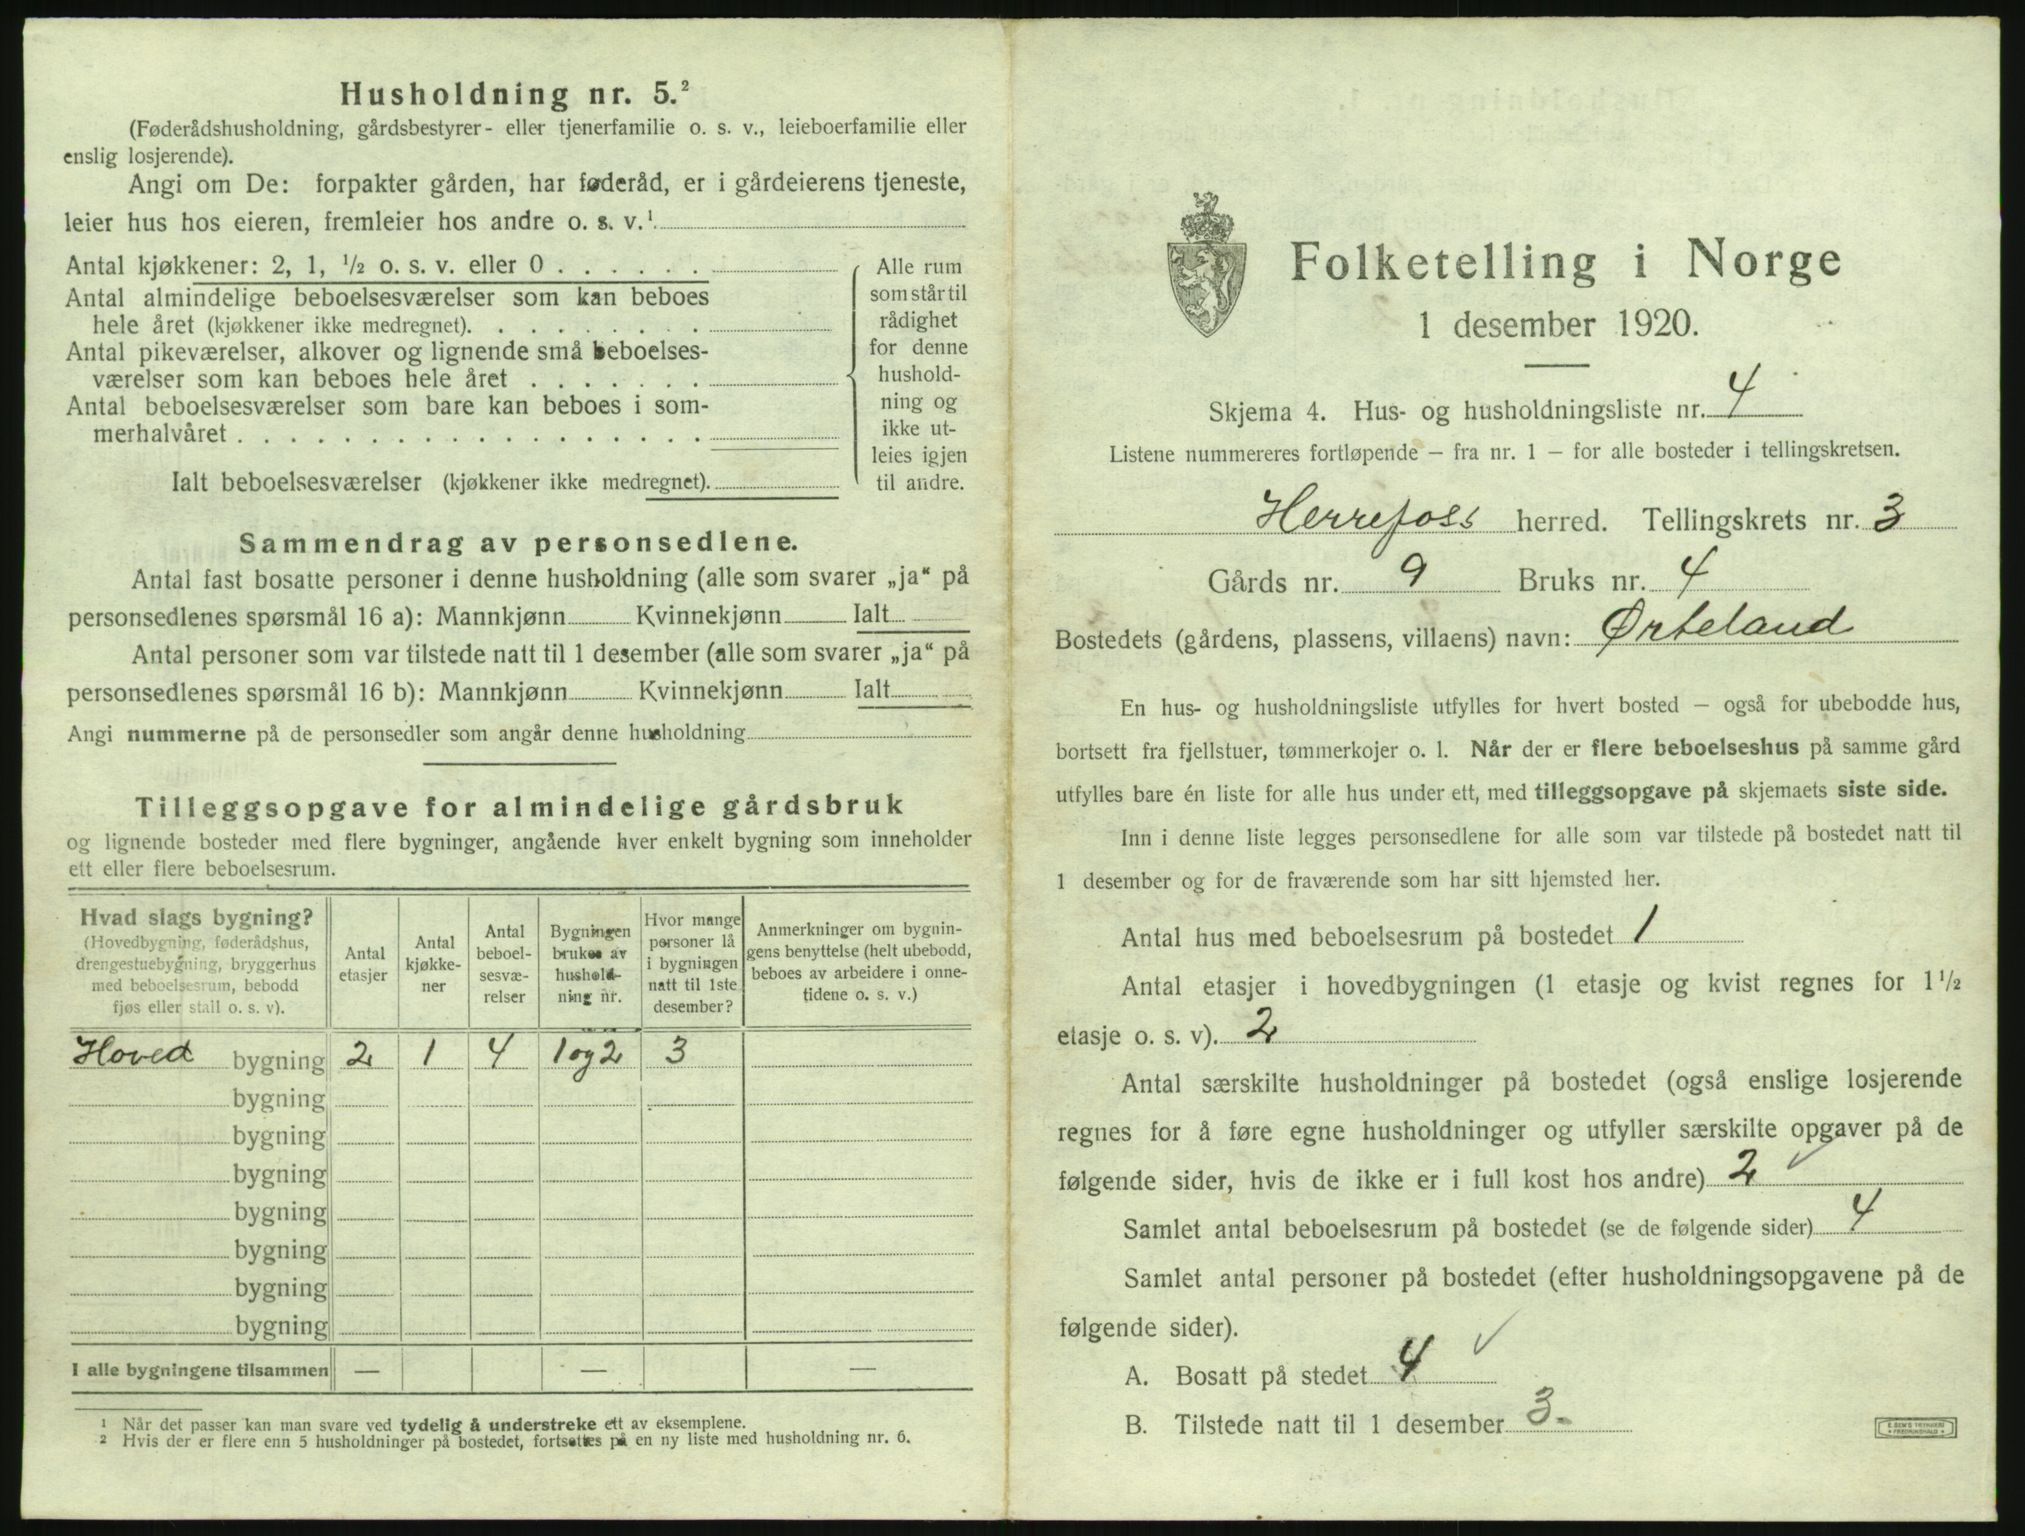 Husholdning nr. 5.²
(Føderådshusholdning, gårdsbestyrer- eller tjenerfamilie o. s. v., leieboerfamilie eller
enslig losjerende).
Angi om De: forpakter gården, har føderåd, er i gårdeierens tjeneste,
leier hus hos eieren, fremleier hos andre o. s. v.¹
Antal kjøkkener: 2, 1, ½ o. s. v. eller 0 . . . . . .
Antal almindelige beboelsesværelser som kan beboes
hele året (kjøkkener ikke medregnet). . . . . . . . .
Antal pikeværelser, alkover og lignende små beboelses-
værelser som kan beboes hele året . . . . . . .
Antal beboelsesværelser som bare kan beboes i som-
merhalvåret . . . . . . . . . . . . . . . . . .
Alle rum
som står til
rådighet
for denne
hushold-
ning og
ikke ut-
leies igjen
til andre.
Ialt beboelsesværelser (kjøkkener ikke medregnet).
Sammendrag av personsedlene.
Antal fast bosatte personer i denne husholdning (alle som svarer „ja“ på
personsedlenes spørsmål 16 a): Mannkjønn Kvinnekjønn Ialt
Antal personer som var tilstede natt til 1 desember (alle som svarer „ja“ på
personsedlenes spørsmål 16 b): Mannkjønn Kvinnekjønn Ialt
Angi nummerne på de personsedler som angår denne husholdning
Tilleggsopgave for almindelige gårdsbruk
og lignende bosteder med flere bygninger, angående hver enkelt bygning som inneholder
ett eller flere beboelsesrum.
Hvad slags bygning?
(Hovedbygning, føderådshus,
drengestuebygning, bryggerhus
med beboelsesrum, bebodd
fjøs eller stall o. s. v).
Antal
etasjer
Antal
kjøkke-
ner
Antal
beboel-
sesvæ-
relser
Bygningen
brukes av
hushold-
ning nr.
Hvor mange
personer lå
i bygningen
natt til 1ste
desember?
Anmerkninger om bygnin-
gens benyttelse (helt ubebodd,
beboes av arbeidere i onne-
tidene o. s. v.)
Hoved bygning 2 1 4 1 og 2 3
bygning
bygning
bygning
bygning
bygning
bygning
bygning
I alle bygningene tilsammen — — —
¹ Når det passer kan man svare ved tydelig å understreke ett av eksemplene.
² Hvis der er flere enn 5 husholdninger på bostedet, fortsettes på en ny liste med husholdning nr. 6.
Folketelling i Norge
1 desember 1920.
Skjema 4. Hus- og husholdningsliste nr. 4
Listene nummereres fortløpende – fra nr. 1 – for alle bosteder i tellingskretsen.
Herrefoss herred. Tellingskrets nr. 3
Gårds nr. 9 Bruks nr. 4
Bostedets (gårdens, plassens, villaens) navn: Ørteland
En hus- og husholdningsliste utfylles for hvert bosted – også for ubebodde hus,
bortsett fra fjellstuer, tømmerkojer o. l. Når der er flere beboelseshus på samme gård
utfylles bare én liste for alle hus under ett, med tilleggsopgave på skjemaets siste side.
Inn i denne liste legges personsedlene for alle som var tilstede på bostedet natt til
1 desember og for de fraværende som har sitt hjemsted her.
Antal hus med beboelsesrum på bostedet 1
Antal etasjer i hovedbygningen (1 etasje og kvist regnes for 1½
etasje o. s. v). 2
Antal særskilte husholdninger på bostedet (også enslige losjerende
regnes for å føre egne husholdninger og utfyller særskilte opgaver på de
følgende sider, hvis de ikke er i full kost hos andre) 2 ✓
Samlet antal beboelsesrum på bostedet (se de følgende sider) 4
Samlet antal personer på bostedet (efter husholdningsopgavene på de
følgende sider).
A. Bosatt på stedet 4 ✓
B. Tilstede natt til 1 desember 3.